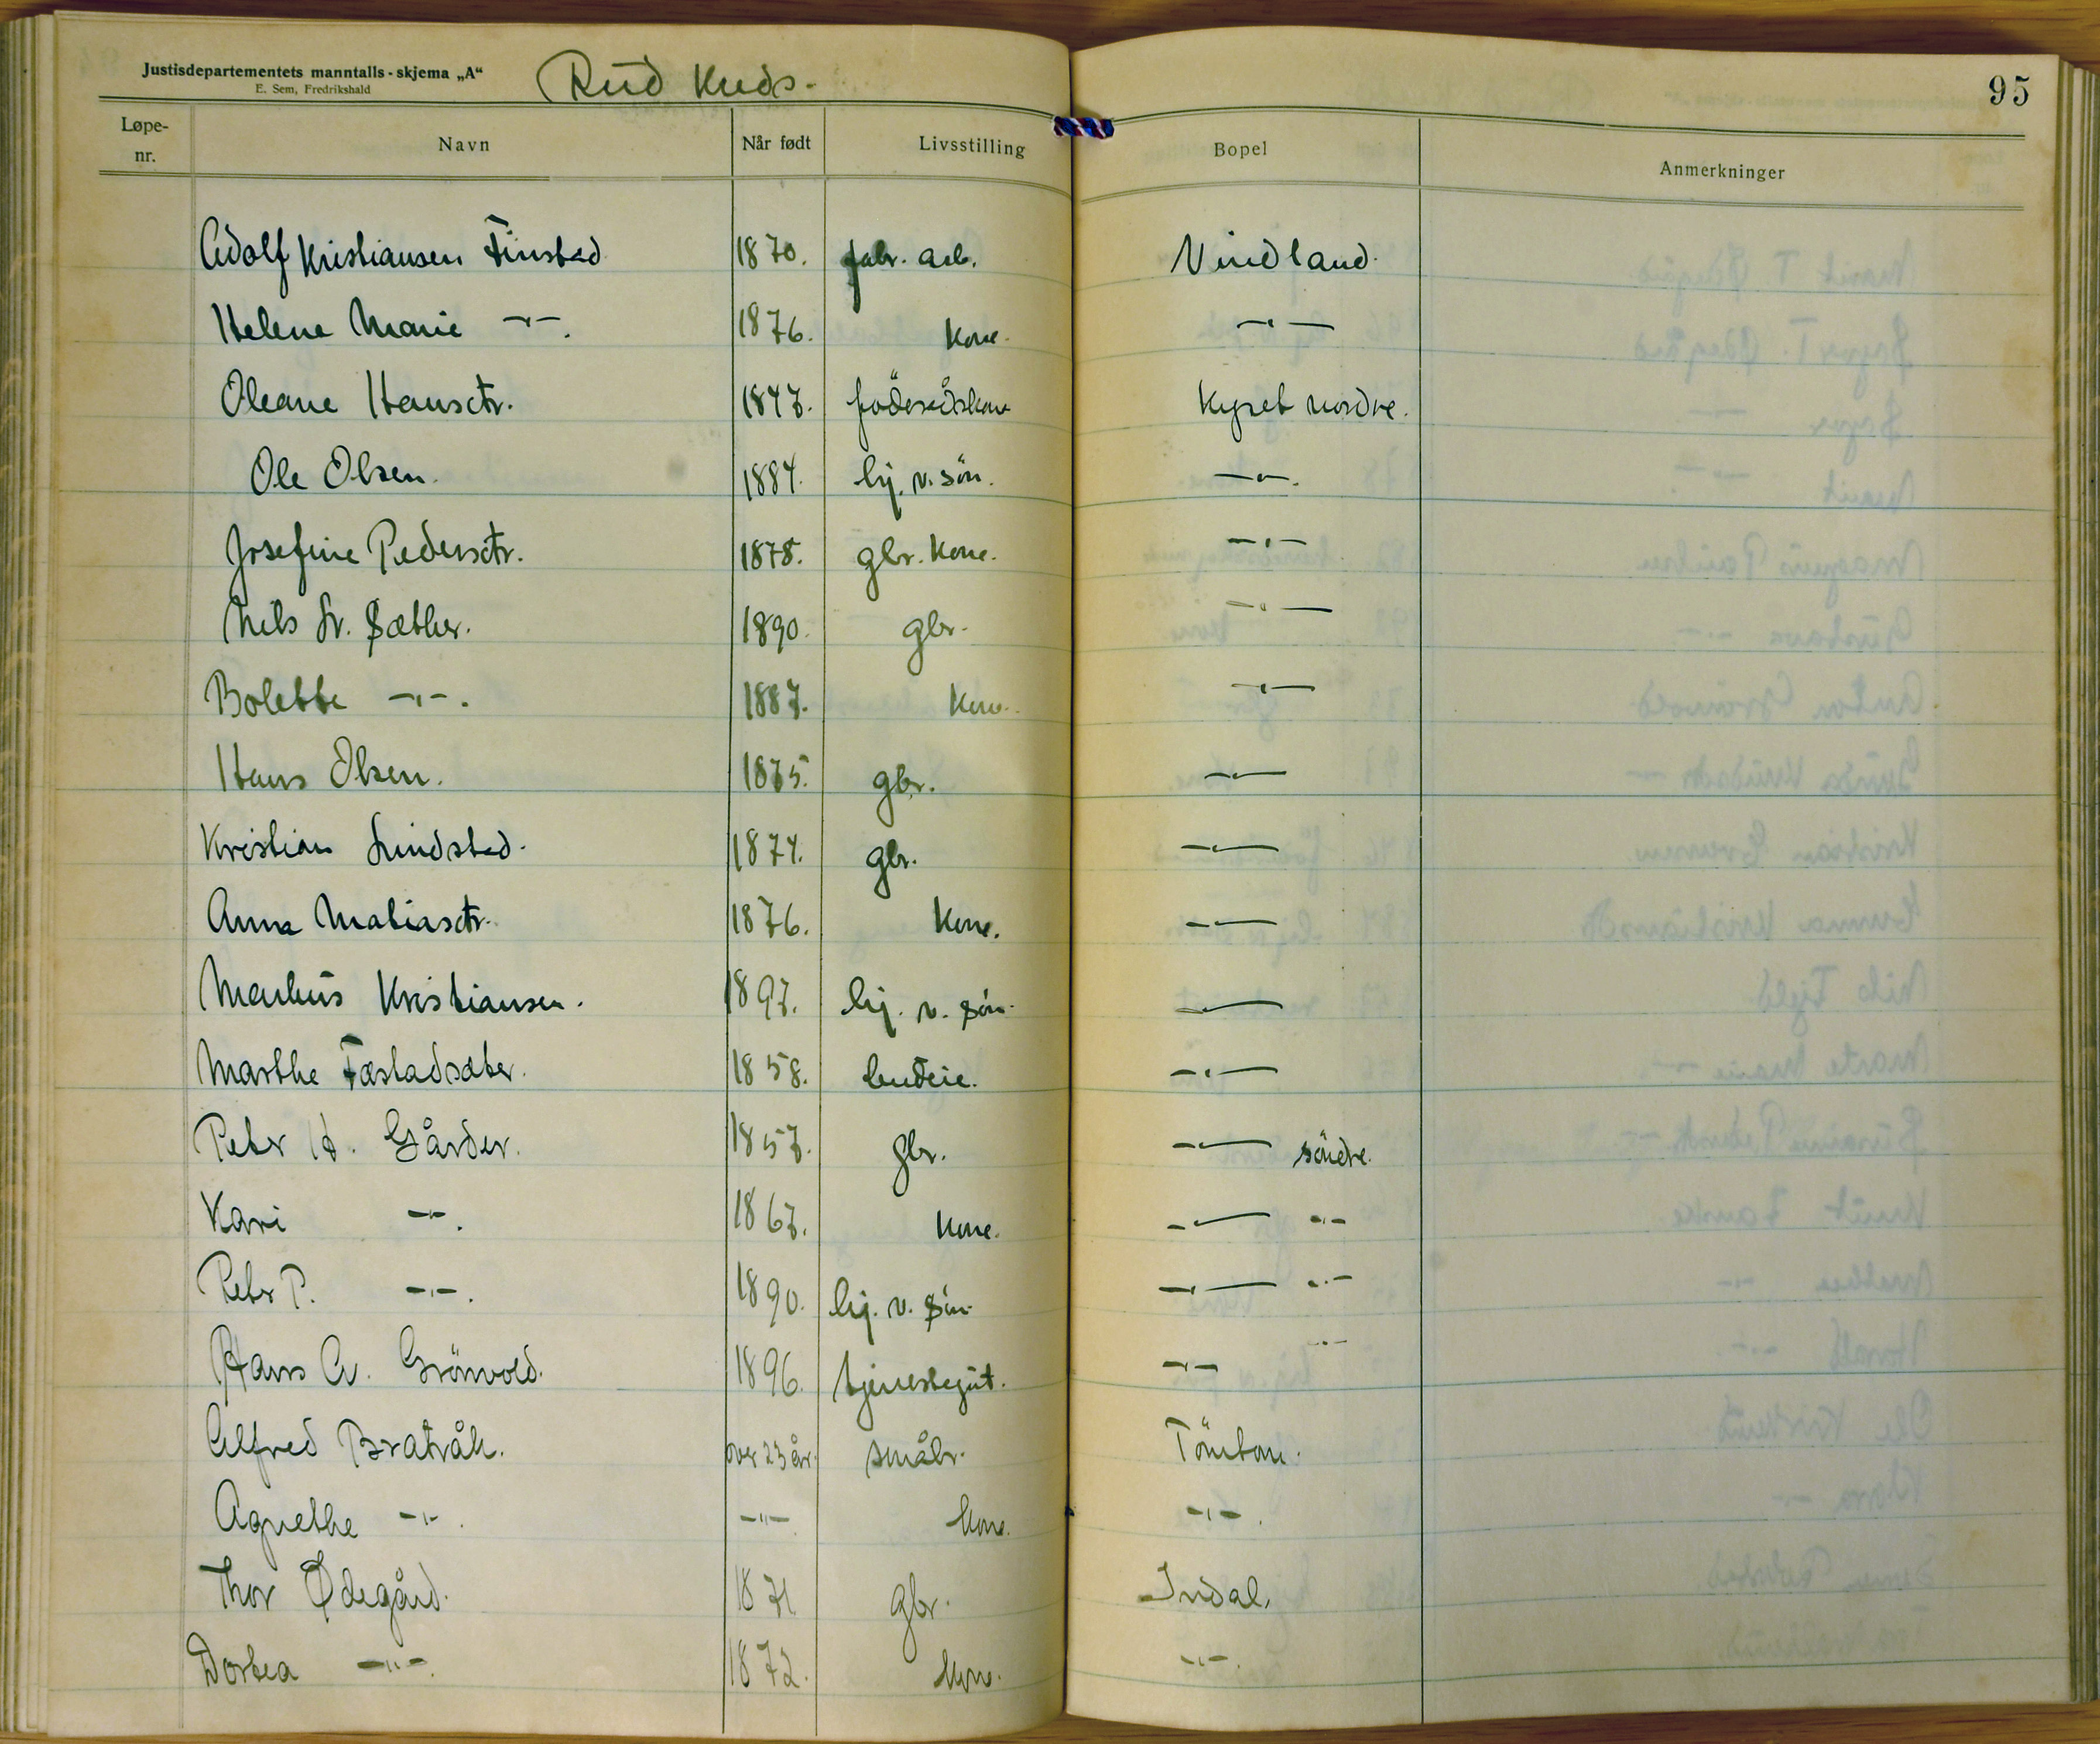 Justisdepartementets manntalls-skjema „A“
E. Sem, Fredrikshald
Rud Kreds.
95
Løpe-nr. Navn Når født Livsstilling Bopel Anmerkninger
Adolf Kristiansen Finstad 1870. fabr. arb. Vindland.
Helene Marie -"-. 1876. Kone. -"-
Oleane Hansdtr. 1847. föderådskone Kyset nordre.
Ole Olsen. 1884. hj. v. sön. -"-.
Josefine Pedersdtr. 1878. gbr. Kone. -"-
Nils Kr. Sæther. 1890. gbr. -"-
Bolette -"-. 1887. Kone. -"-
Hans Olsen. 1875. gbr. -"-
Kristian Lundstad. 1874. gbr. -"-
Anna Matiasdtr. 1876. Kone. -"-
Markus Kristiansen. 1897. hj. v. sön. -"-
Marthe Fæstadsæter. 1858. budeie. -"-
Peter H. Gårder. 1857. gbr. -"- söndre.
Kari -"-. 1867. Kone. -"- -"-
Peter P. -"-. 1890. hj. v. sön. -"- -"-
Hans A. Grönvold. 1896. tjenestegut. -"- -"-
Alfred Bratvåk. over 23 år. småbr. Tömton.
Agnethe -"-. -"-. Kone. -"-.
Thor Ødegård. 1871 gbr. Indal.
Dortea -"-. 1872. Kone. -"-.